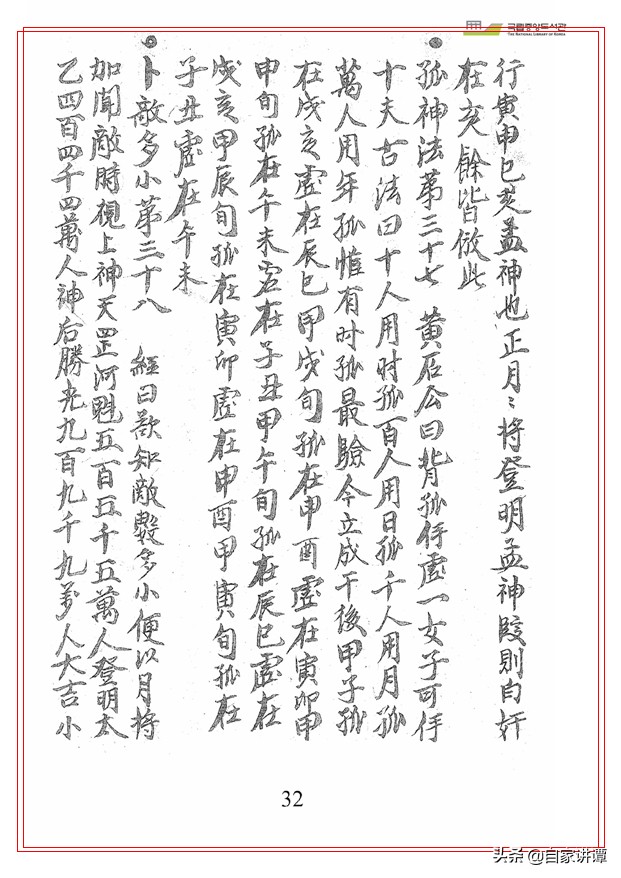 국립중앙도서관
THE NATIONAL LIBRARY OF KOREA
行寅申巳亥孟神也正月〻将登明孟神陵則自奸
在亥餘皆倣此
孤神法第三十七 黄石公曰背孤伻虚一女子可伻
十夫古法曰十人用时孤百人用日孤千人用月孤
萬人用年孤惟有时孤最驗今立成于後甲子孤
在戌亥虚在辰巳甲戌旬孤在申酉虚在寅卯甲
申旬孤在午未虚在子丑甲午旬孤在辰巳虚在
戌亥甲辰旬孤在寅卯虚在申酉甲寅旬孤在
子丑虚在午未
卜敵多小第三十八 經曰欲知敵數多小便以月将
加聞敵時視上神天罡河魁五百五千五萬人登明太
乙四百四千四萬人神后勝光九百九千九万人大吉小
32
头条 @自家讲谭